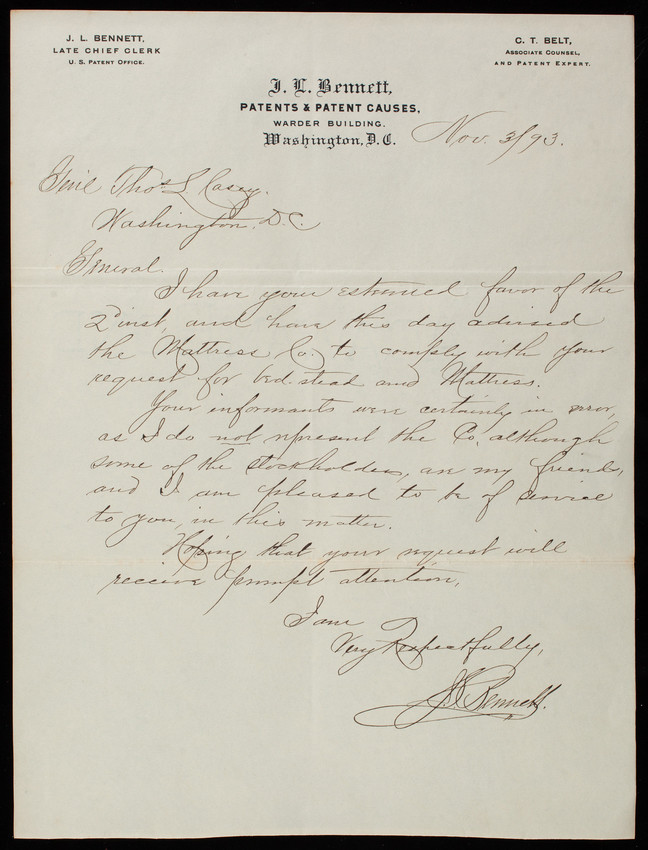 J. L. BENNETT,
LATE CHIEF CLERK
U. S. PATENT OFFICE.
C. T. BELT,
ASSOCIATE COUNSEL,
AND PATENT EXPERT.
J. L. Bennett,
PATENTS & PATENT CAUSES,
WARDER BUILDING.
Washington, D. C.
Nov. 3/93.
Genl Thos L. Casey.
Washington. D. C.
General.
I have your esteemed favor of the
2d inst, and have this day advised
the Mattress Co. to comply with your
request for bed-stead and Mattress.
Your informants were certainly in error,
as I do not represent the Co. although
some of the stockholders, are my friends,
and I am pleased to be of service
to you, in this matter.
Hoping that your request will
receive prompt attention,
I am
Very Respectfully,
J. L. Bennett.